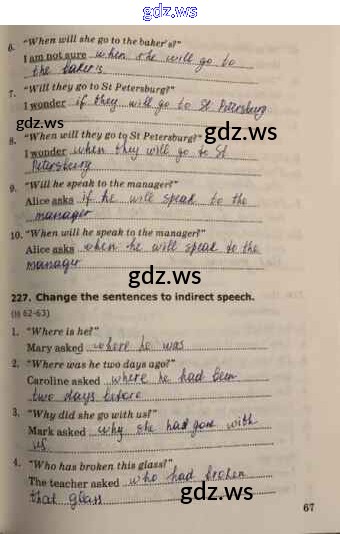 gdz.ws
6. "When will she go to the baker's?"
I am not sure when she will go to
the baker's
7. "Will they go to St Petersburg?"
I wonder if they will go to St Petersburg
gdz.ws
gdz.ws
8. "When will they go to St Petersburg?"
I wonder when they will go to St
Petersburg
9. "Will he speak to the manager?"
Alice asks if he will speak to the
manager
10. "When will he speak to the manager?"
Alice asks when he will speak to the
manager
gdz.ws
227. Change the sentences to indirect speech.
(§§ 62-63)
1. "Where is he?"
Mary asked where he was
2. "Where was he two days ago?"
Caroline asked where he had been
two days before
3. "Why did she go with us?"
Mark asked why she had gone with
us
4. "Who has broken this glass?"
The teacher asked who had broken
that glass
gdz.ws
67
gdz.ws